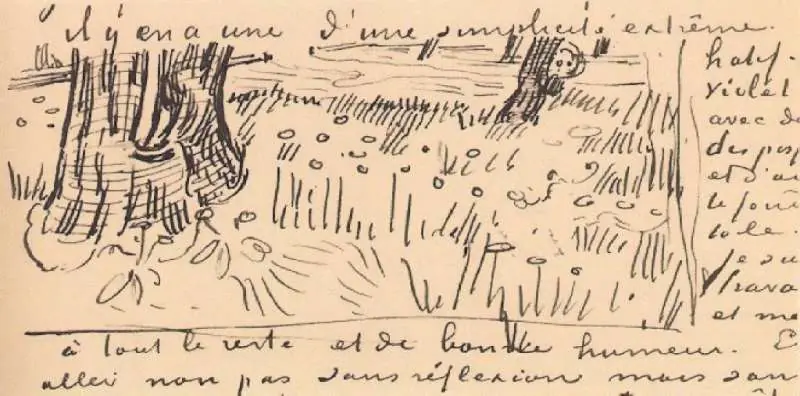 il y en a une d'une simplicité extrême.
violet
avec de
et d'au
le
Je su
trava
et me
à tout le reste et de bonne humeur. E
aller non pas sans réflexion mais san